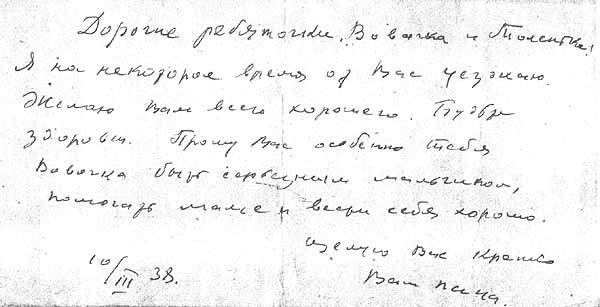 Дорогие ребяточки, Вовочка и Толечка!
Я на некоторое время от Вас уезжаю.
Желаю Вам всего хорошего. Будьте
здоровы. Прошу Вас особенно тебя
Вовочка быть серьезным мальчиком,
помогать маме и вести себя хорошо.
Целую Вас Крепко
Ваш папа.
10/III 38.